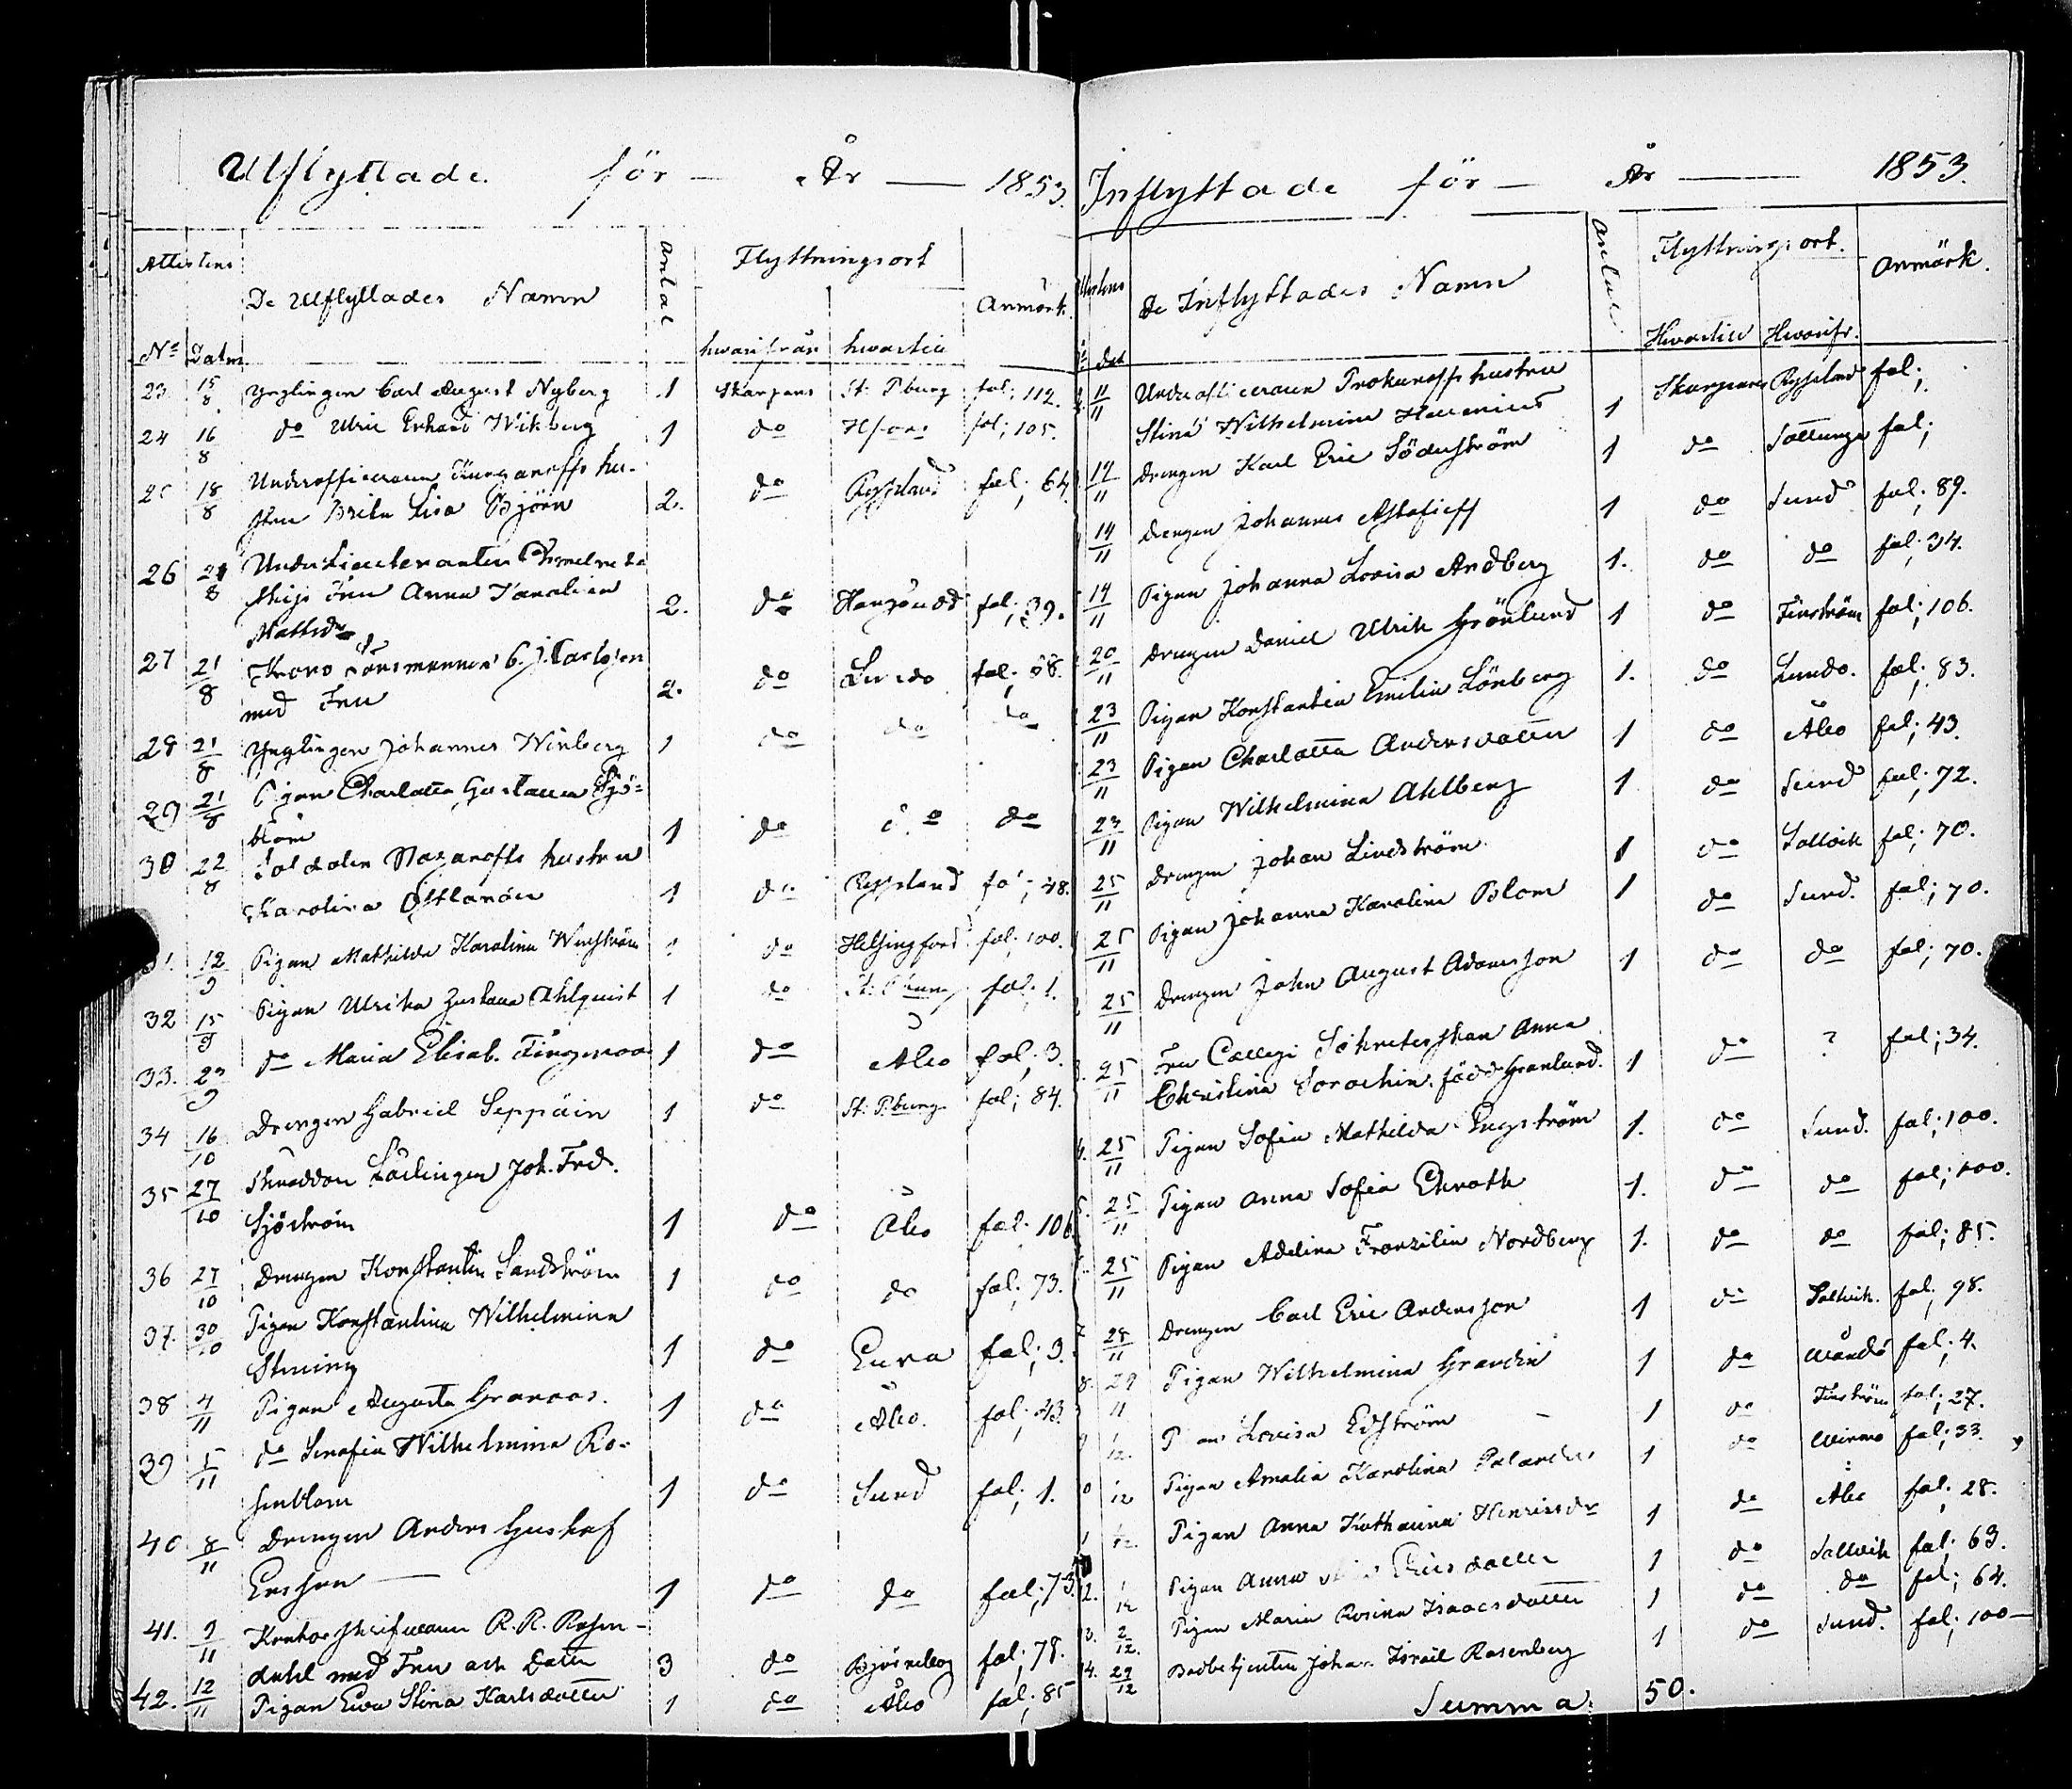 Utflyttade för År 1853.
Attestens De Utflyttades Namn Antal Flyttningsort Anmärk.
No Datum hvarifrån hvartill
23. 15/8 Ynglingen Carl August Nyberg 1 Skarpans St. P.burg fol; 112.
24 16/8 do Ulric Erhard Wikberg 1 do H:fors fol; 105.
25 18/8 Underofficeraren hu-
stru Brita Lisa Björn 2. do Ryssland fol; 64.
26 21/8 Under Lieutenanten
Fru Anna Karolina
Mathda 2. do fol; 39.
27 21/8 Krono Länsmannen C. J. Carlsson
med Fru 2. do Lundo fol; 88.
28 21/8 Ynglingen Johannes Winberg 1 do do do
29 21/8 Pigan Charlotta Gustava Sjö-
blom 1 do do do
30 22/8 Soldaten Nazaroffs hustru
Karolina Östlanden 1 do Ryssland fol; 48.
31. 12/9 Pigan Mathilda Karolina Wenström 1 do Helsingfors fol; 100.
32 15/9 Pigan Ulrika Gustava Ahlquist 1 do St. P.burg fol; 1.
33. 23/9 do Maria Elisab. Fingerroos 1 do Åbo fol; 3.
34 16/10 Drengen Gabriel Seppäin 1 do St. P.burg fol; 84.
35 27/10 Skräddare Lärlingen Joh. Fred.
Sjöström 1 do Åbo fol. 106
36 27/10 Drengen Konstantin Sandström 1 do do fol; 73.
37. 30/10 Pigan Konstantina Wilhelmina
Stening 1 do Eura fol; 3.
38 4/11 Pigan Augusta Granroos. 1 do Åbo. fol; 43.
39 5/11 do Serafia Wilhelmina Ro-
senblom 1 do Sund fol; 1.
40 8/11 Drengen Anders Gustaf
Ersson 1 do do fol; 73.
41. 9/11 Kontorsskrifvaren R. R. Rosen-
dahl med Fru och Dotter 3 do Björneborg fol; 78.
42. 12/11 Pigan Eva Stina Karlsdotter 1 do Åbo fol; 85
Inflyttade för År 1853.
Attestens De Inflyttades Namn Antal Flyttningsort. Anmärk.
Dat Hvartill Hvarifr.
11/11 Underofficeraren Prokuroffs hustru
Stina Wilhelmina Helenius 1 Skarpans Ryssland fol;
12/11 Drengen Karl Eric Söderström 1 do Sottunga fol;
14/11 Drengen Johannes Astafieff 1 do Sund fol; 89.
14/11 Pigan Johanna Lovisa Andberg 1. do do fol; 34.
20/11 Drengen Daniel Ulrik Grönlund 1 do Finström fol; 106.
23/11 Pigan Konstantia Emilia Lönberg 1. do Lundo. fol; 83.
23/11 Pigan Charlotta Andersdotter 1 do Åbo fol; 43.
23/11 Pigan Wilhelmina Ahlberg 1 do Sund fol; 72.
25/11 Drengen Johan Lindström 1 do Saltvik fol; 70.
25/11 Pigan Johanna Karolina Blom 1 do Sund. fol; 70.
25/11 Drengen John August Adamsson 1 do do fol; 70.
3. 25/11 Fru Collegi Sekreterskan Anna
Christina Sorochin, född Granlund. 1 do ? fol; 34.
4. 25/11 Pigan Sofia Mathilda Engström 1. do Sund. fol; 100.
5. 25/11 Pigan Anna Sofia Ekroth 1. do do fol; 100.
25/11 Pigan Adelina Franzilia Nordberg 1. do do fol; 85.
7 28/11 Drengen Carl Eric Andersson 1 do Saltvik. fol; 98.
8. 29/11 Pigan Wilhelmina Grandin 1 do Wårdö fol; 4.
9 1/12. Pigan Lovisa Edström 1 do Finström fol; 27.
0 1/12 Pigan Amalia Karolina Palander 1 do Wirmo fol; 33.
1 1/12. Pigan Anna Katharina Henricsdr 1 do Åbo fol; 28.
2. 1/12 Pigan Anna Ericsdotter 1 do Saltvik fol; 63.
3. 2/12. Pigan Maria Rosina Isaacsdotter 1 do do fol; 64.
4. 29/12 Bodbetjenten Johan Israel Rosenberg 1 do Sund. fol; 100
Summa: 50.